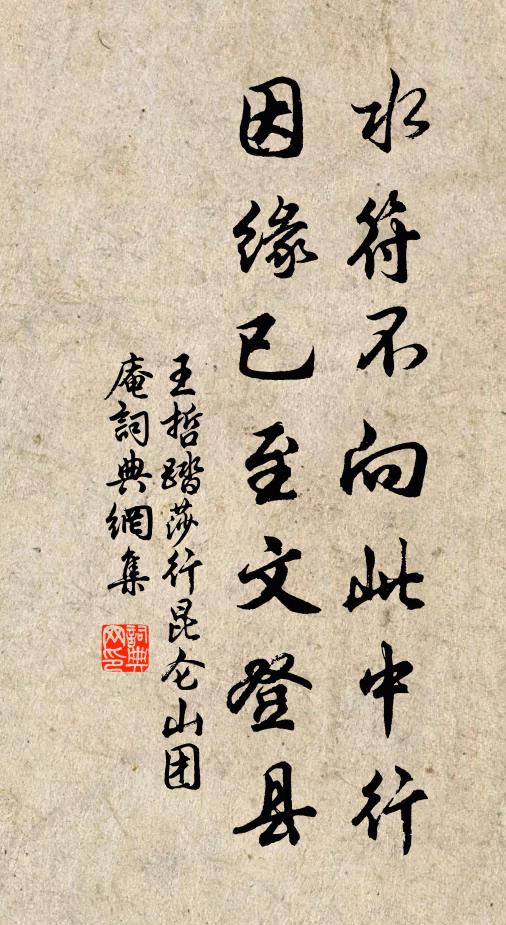 水符不向此中行
因缘已至文登县
王哲踏莎行昆仑山团
庵詞典網集
詞典
网印